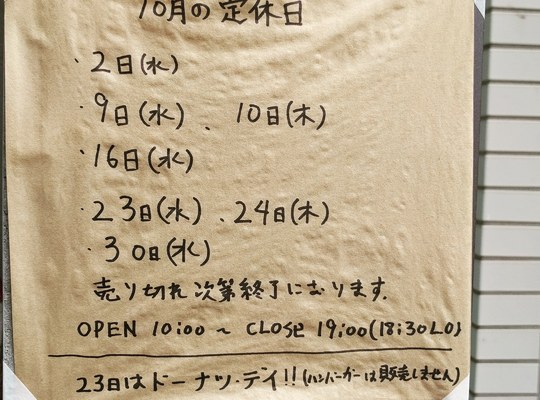 10月の定休日
・2日(水)
・9日(水)、10日(木)
・16日(水)
・23日(水)、24日(木)
・30日(水)
売り切れ次第終了になります。
OPEN 10:00 ~ CLOSE 19:00(18:30LO)
23日はドーナツ・デイ!!(ハンバーガーは販売しません)